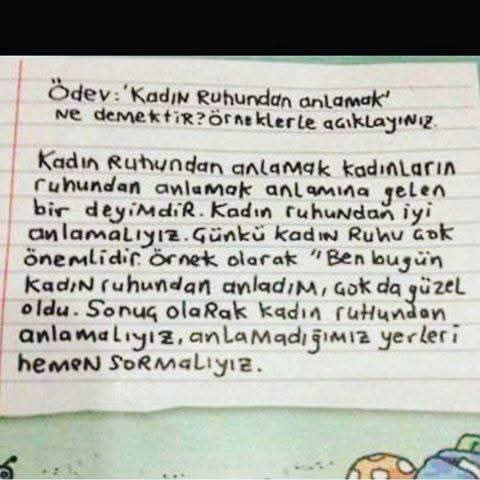 Ödev: 'Kadın Ruhundan anlamak'
ne demektir? Örneklerle açıklayınız.
Kadın Ruhundan anlamak kadınların
ruhundan anlamak anlamına gelen
bir deyimdir. Kadın ruhundan iyi
anlamalıyız. Günkü kadın Ruhu çok
önemlidir. Örnek olarak "Ben bugün
kadın ruhundan anladım, çok da güzel
oldu. Sonuç olarak kadın ruhundan
anlamalıyız, anlamadığımız yerleri
hemen sormalıyız.